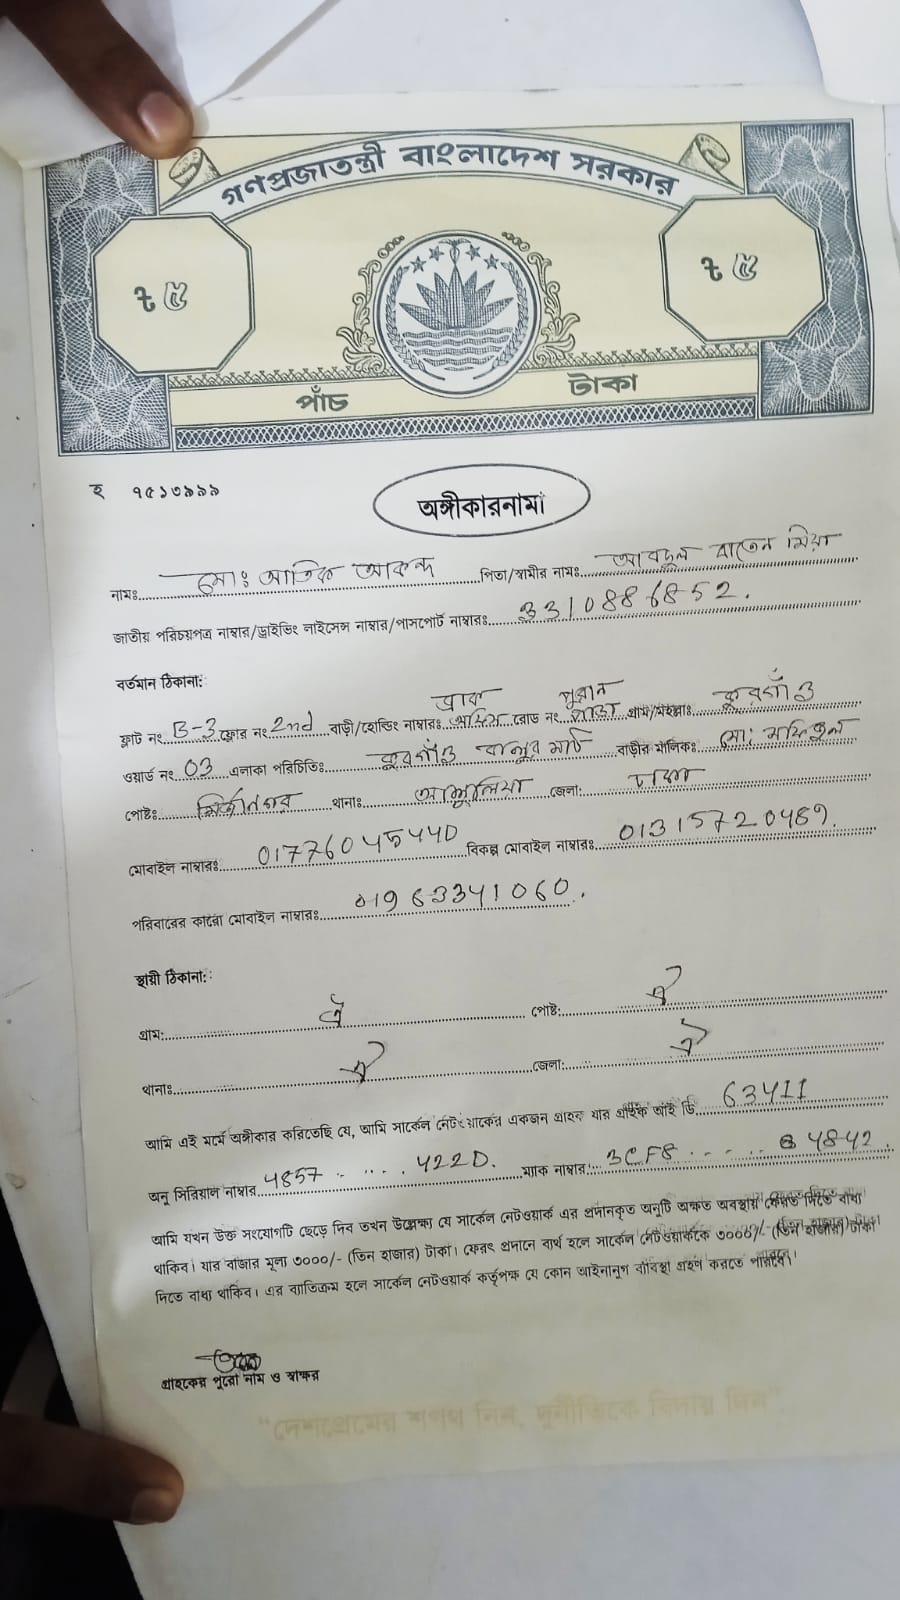 গণপ্রজাতন্ত্রী বাংলাদেশ সরকার
৳ ৫ ৳ ৫
পাঁচ টাকা
অঙ্গীকারনামা
নামঃ মোঃ আতিক আকন্দ পিতা/স্বামীর নামঃ আবদুল বাতেন মিয়া
জাতীয় পরিচয়পত্র নাম্বার/ড্রাইভিং লাইসেন্স নাম্বার/পাসপোর্ট নাম্বারঃ 3310886852.
বর্তমান ঠিকানা:
ফ্লাট নং B-3 ফ্লোর নং 2nd বাড়ী/হোল্ডিং নাম্বারঃ ব্রাক অফিস রোড নং পুরান পাড়া গ্রাম/মহল্লাঃ কুরগাঁও
ওয়ার্ড নং 03 এলাকা পরিচিতিঃ কুরগাঁও বালুর মাঠ বাড়ীর মালিকঃ মো: মফিজুল
পোষ্টঃ মির্জানগর থানাঃ আশুলিয়া জেলা: ঢাকা
মোবাইল নাম্বারঃ 01776045440 বিকল্প মোবাইল নাম্বারঃ 01315720489.
পরিবারের কারো মোবাইল নাম্বারঃ 01963341060.
স্থায়ী ঠিকানা:
গ্রাম: ঐ পোষ্ট: ঐ
থানাঃ ঐ জেলা: ঐ
আমি এই মর্মে অঙ্গীকার করিতেছি যে, আমি সার্কেল নেটওয়ার্কের একজন গ্রাহক যার গ্রাহক আই ডি. 63411
অনু সিরিয়াল নাম্বার 4857 ..... 422D. ম্যাক নাম্বার: 3CF8 ..... 4842.
আমি যখন উক্ত সংযোগটি ছেড়ে দিব তখন উল্লেখ্য যে সার্কেল নেটওয়ার্ক এর প্রদানকৃত অনুটি অক্ষত অবস্থায় ফেরত দিতে বাধ্য
থাকিব। যার বাজার মূল্য ৩০০০/- (তিন হাজার) টাকা। ফেরৎ প্রদানে ব্যর্থ হলে সার্কেল নেটওয়ার্ককে ৩০০০/- (তিন হাজার) টাকা
দিতে বাধ্য থাকিব। এর ব্যতিক্রম হলে সার্কেল নেটওয়ার্ক কর্তৃপক্ষ যে কোন আইনানুগ ব্যবিস্থা গ্রহণ করতে পারবে।
গ্রাহকের পুরো নাম ও স্বাক্ষর
"দেশপ্রেমের শপথ নিন, দুর্নীতিকে বিদায় দিন"